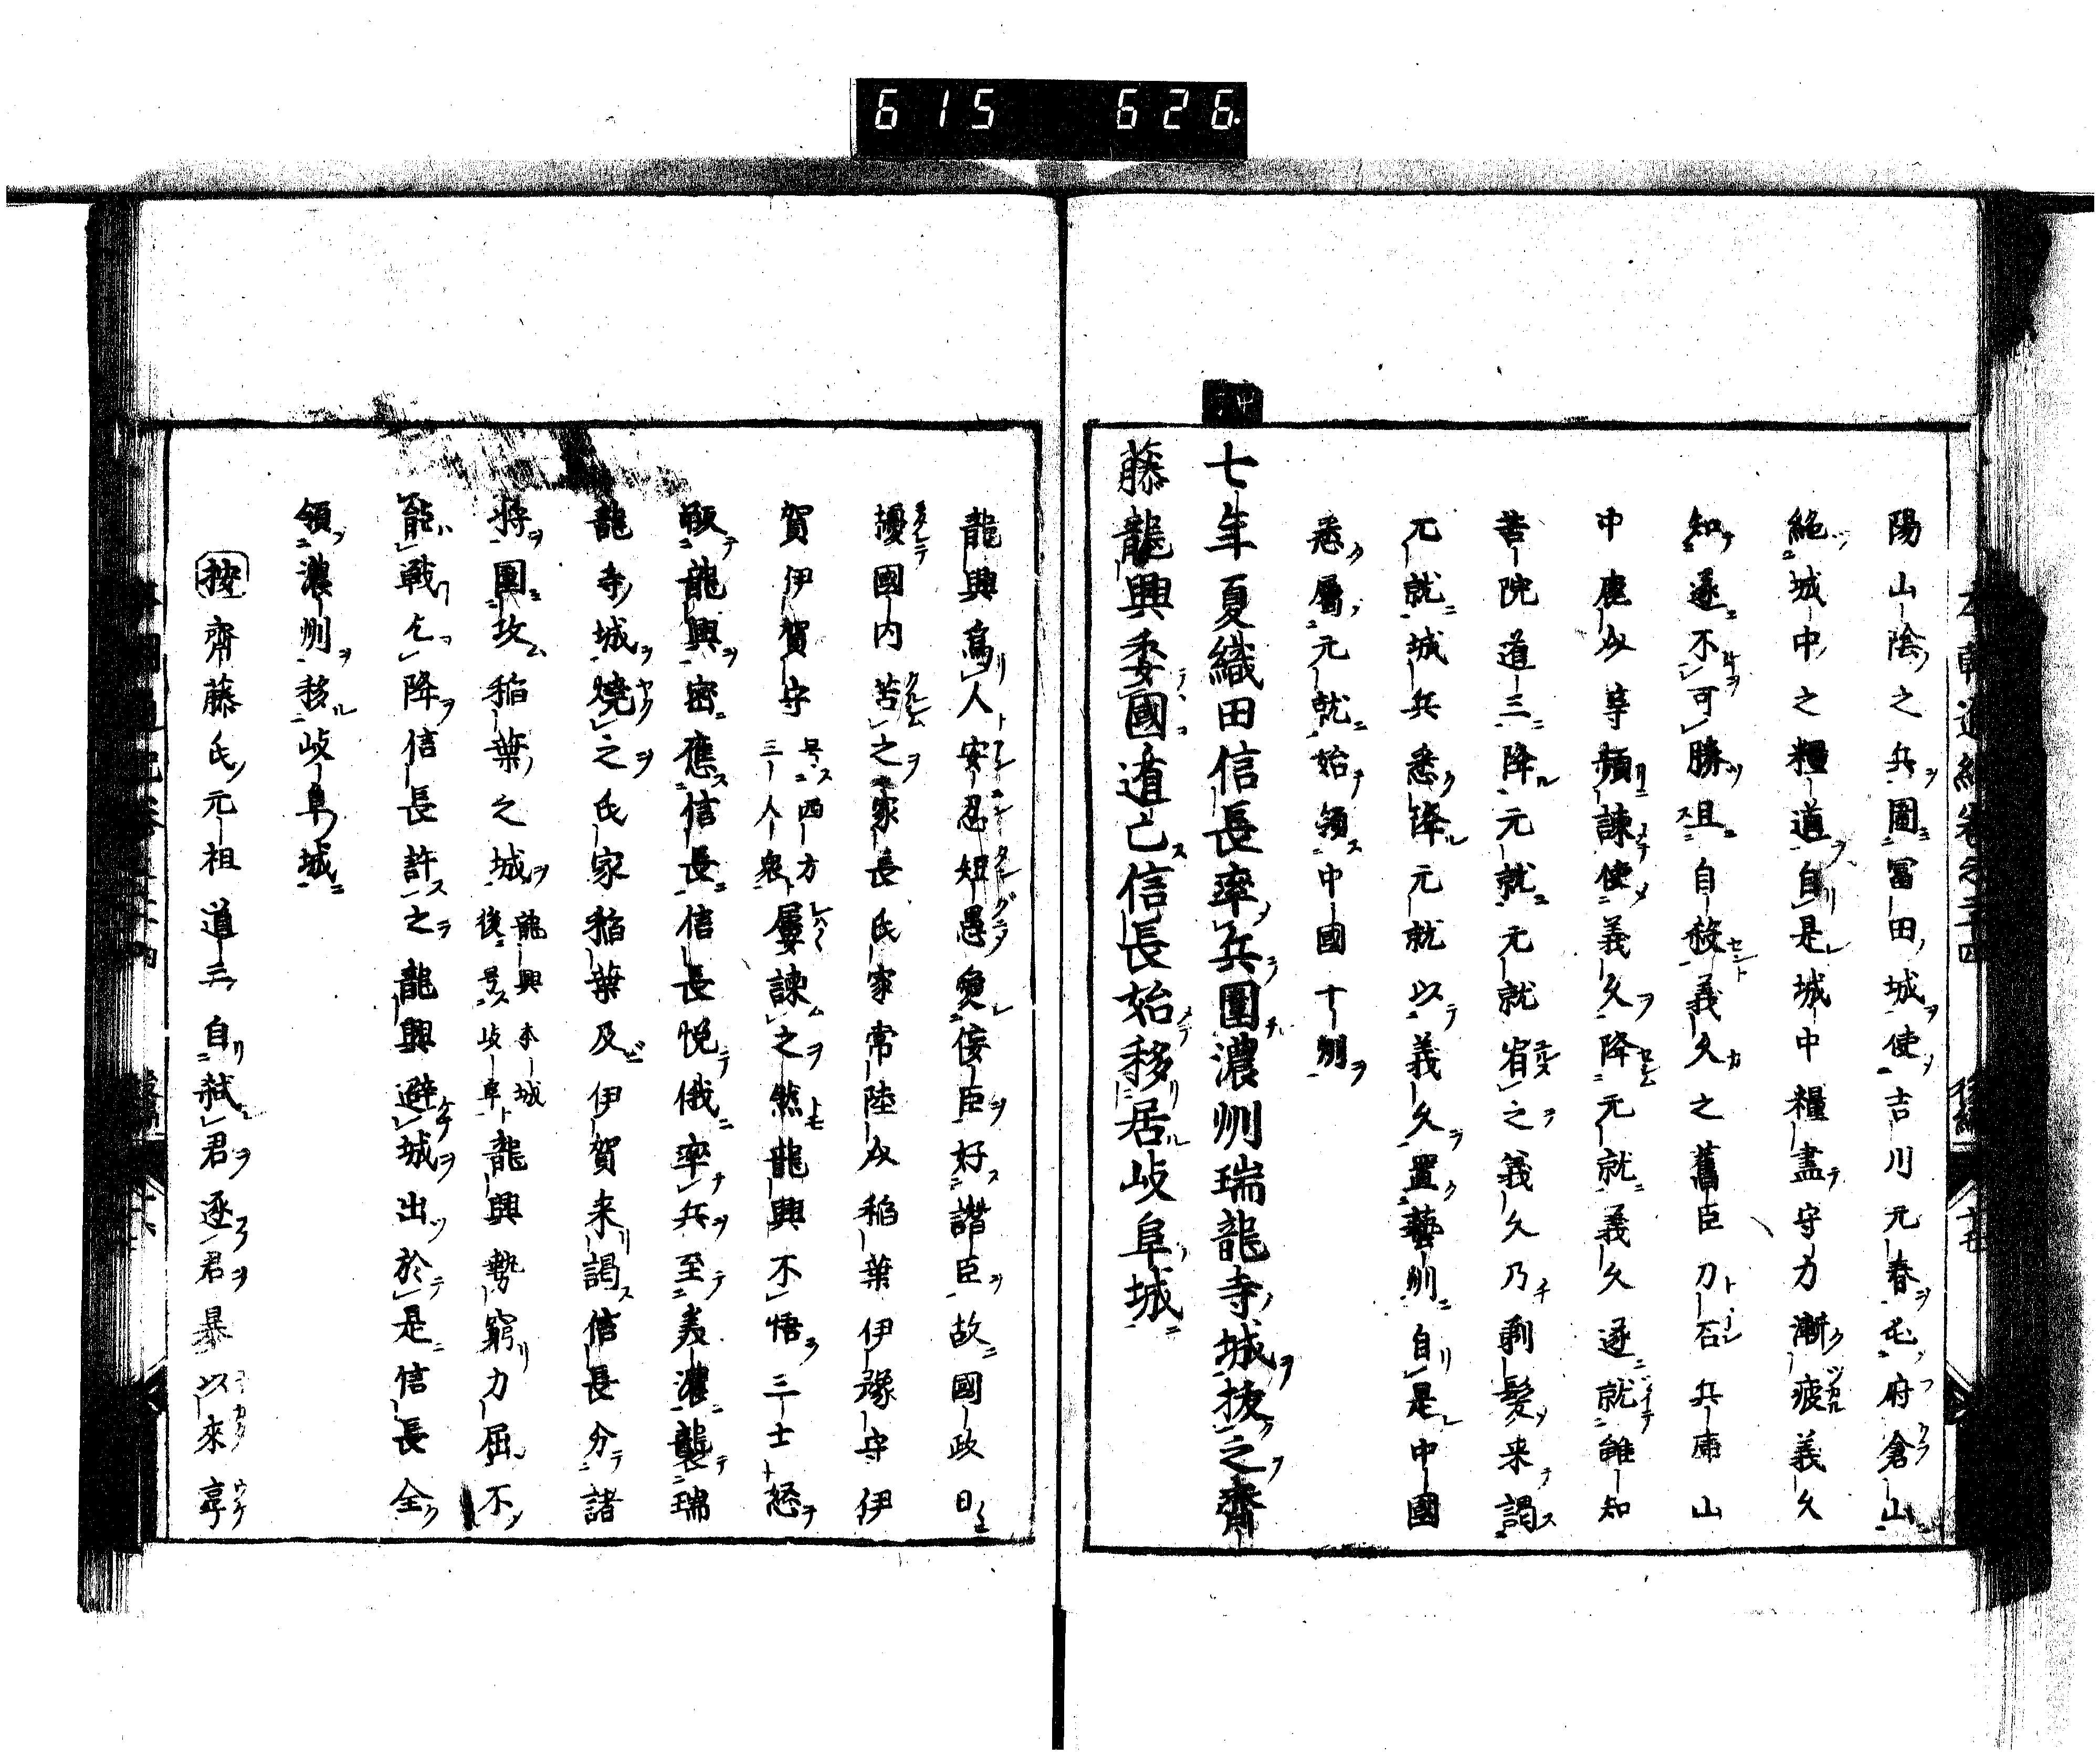 615 626
陽山陰之兵圍冨田城使吉川元春屯府倉山
絶城中之糧道自是城中糧盡守力漸疲義久
知遂不可勝且自殺義久之舊臣刀石兵庫山
中鹿以等頻諫使義久降元就義久遂就誰知
苦院道三降元就元就宥之義久乃剃髮来謁
元就城兵悉降元就以義久置藝州自是中國
悉屬元就始領中國十州
七年夏織田信長率兵圍濃州瑞龍寺城抜之齋
藤龍興委國道亡信長始移居岐阜城
龍興爲人安忍短愚愛侫臣好譛臣故國政日
擾國内苦之家長氏家常陸介稲葉伊豫守伊
賀伊賀守号西方三人衆屢諫之然龍興不悟三士怒
叛龍興密應信長信長悦俄率兵至美濃襲瑞
龍寺城燒之氏家稲葉及伊賀来謁信長分諸
將圍攻稲葉之城龍興本城後号岐阜龍興勢窮力屈不
能戰乞降信長許之龍興避城出於是信長全
領濃州移岐阜城
按齋藤氏元祖道三自弑君逐君暴以來享